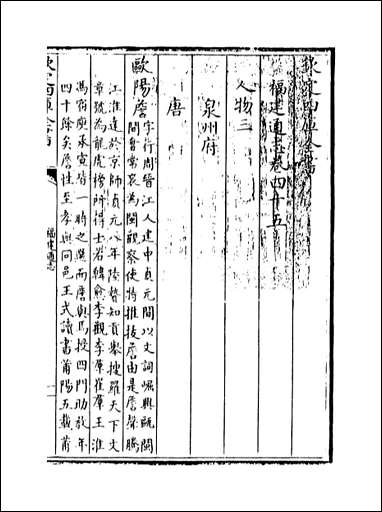 欽定四庫全書
福建通志卷四十五
人物三
泉州府
唐
歐陽詹字行周晉江人建中貞元間以文詞崛興甌閩
間會常衮為閩觀察使特推拔詹由是詹聲騰
江淮達於京師貞元八年陸贄知貢舉搜羅天下文
章號為龍虎榜所得士若韓愈李觀李絳崔羣王淮
馮宿庾承宣皆一時之選而詹與焉授四門助教年
四十餘矣詹性至孝與同邑王式讀書莆陽五載莆
欽定四庫全書
福建通志